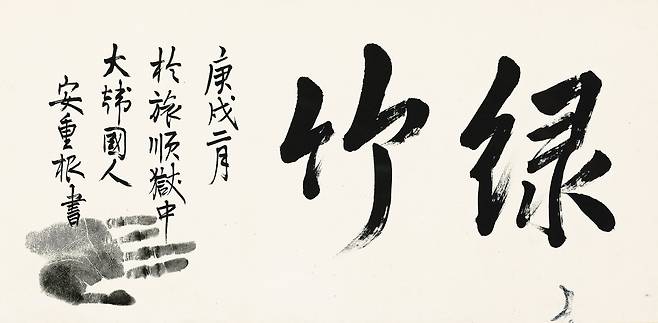 綠竹
庚戌二月
於旅順獄中
大韓國人
安重根書